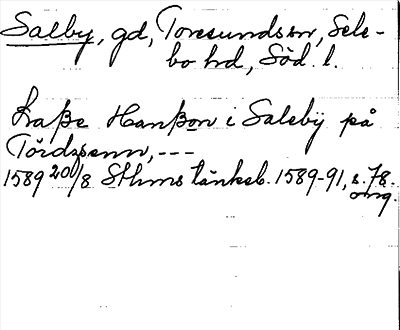 Salby, gd, Toresundssn, Sele-
bo hd, Söd. l.
Laße Hanßon i Saleby på
Tördzsenn, ---
1589 20/8 Sthms tänkeb. 1589-91, s. 78.
omg.